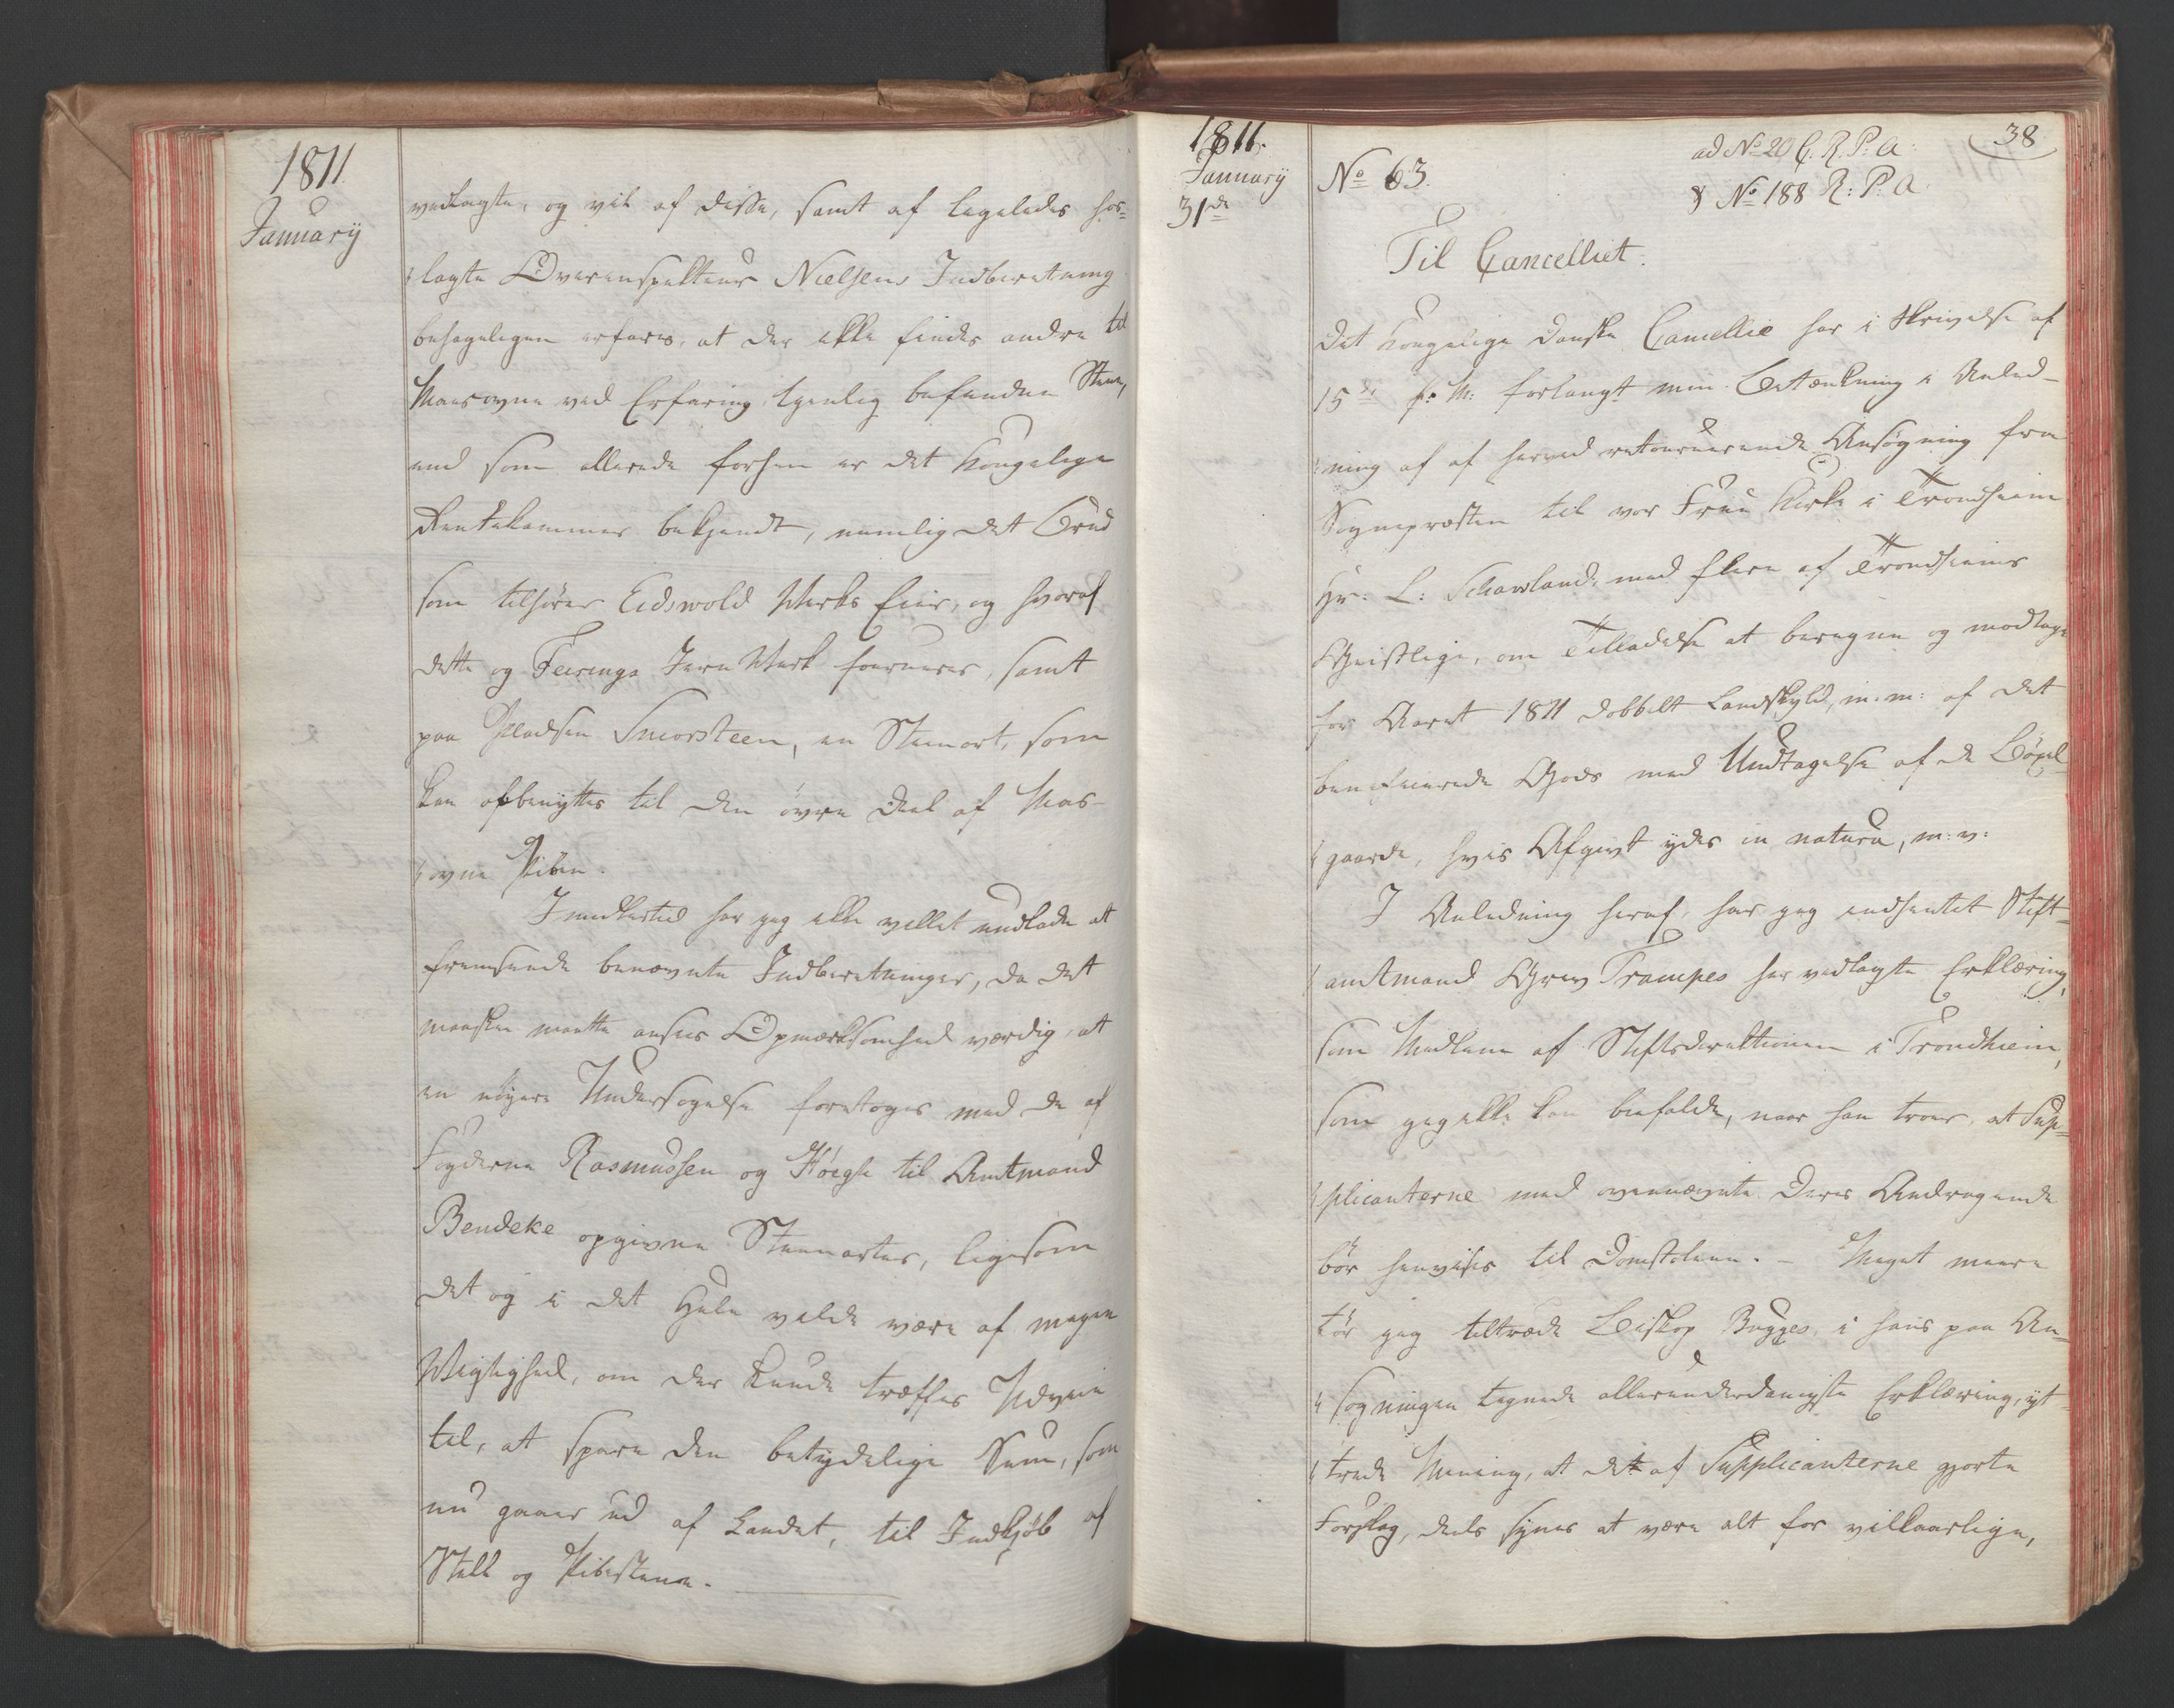 1811
January
vedlagte, og vil af disse, samt af ligeledes hos=
lagte Overinspekteur Nielsens Indberetning
behageligen erfares, at der ikke findes andre til
Masovne ved Erfaring tjenlig befunden Steen,
end som allerede forhen er det Kongelige
Rentekammer bekjendt, nemlig det Brud
som tilhører Eidswold Werks Eier, og hvoraf
dette og Feirings Jern Werk fourneres, samt
paa Pladsen Smorsteen, en Steenart, som
kan afbenyttes til den övre Deel af Mas-
ovne Piben.
Imidlertid har jeg ikke villet undlade at
fremsende benævnte Indberetninger, da det
maaskee maatte ansees Opmærksomhed værdig, at
en nöyere Undersøgelse foretoges med de af
Fogderne Rasmussen og Höegh til Amtmand
Bendeke opgivne Steenarter, ligesom
det og i det Hele vilde være af megen
Wigtighed, om der kunde træffes Udveie
til, at spare den betydelige Sum, som
nu gaaer ud af Landet, til Indkjöb af
Stell og Pibestene.
1811.
January
31de
No 63.
ad No 20 C. R. P. A.
& No 188 R: P. A.
38
Til Cancelliet.
Det Kongelige Danske Cancellie har i Skrivelse af
15de f: M: forlangt min Betænkning i Anled-
ning af af herved retournerende Ansøgning fra
Sognepræsten til vor Frue Kirke i Trondheim
Hr: L: Schavland, med flere af Trondheims
Geistlige, om Tilladelse at beregne og modtage
for Aaret 1811 dobbelt Landskyld, m.m: af det
beneficerede Gods med Undtagelse af de Böxel-
gaarde, hvis Afgivt ydes in natura, m: v:
I Anledning heraf, har jeg indhentet Stift-
amtmand Grev Trampes her vedlagte Erklæring,
som Medlem af Stiftsdirektionen i Trondhiem,
som jeg ikke kan biefalde, naar han troer, at Sup-
plicanterne med ovennævnte deres Andragende
bör henvises til Domstolene. - Meget meere
tör jeg tiltræde Biskop Bugges i hans paa An-
søgningen tegnede allerunderdanigste Erklæring, yt-
trede Mening, at det af Supplicanterne gjorte
Forslag, deels synes at være alt for vilkaarlige,